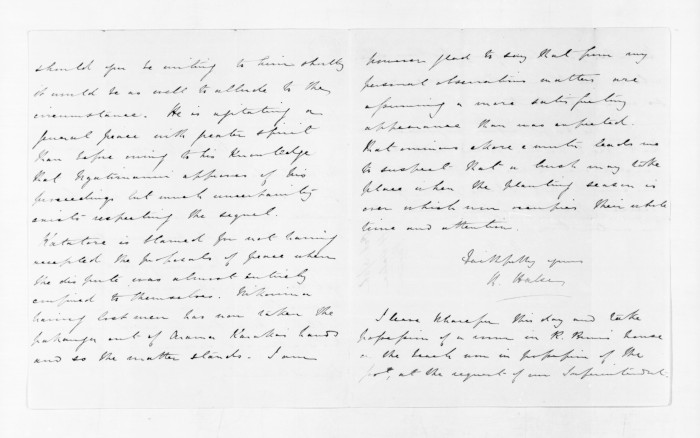 should you be writing to him shortly
it would be as well to allude to the
circumstance. He is agitating a
general peace with greater spirit
than before owing to his knowledge
that Ngatimaniapoto approves of his
proceedings but much uncertainty
exists respecting the sequel.
Katatore is blamed for not having
accepted the proposals of peace when
the dispute was almost entirely
confined to themselves. Nikorima
having lost men has now taken the
pakanga out of Arama Karakas hands
and so the matter stands. I am
however glad to say that from my
personal observation matters are
assuming a more satisfactory
appearance than was expected.
That ominous above leads me
to suspect that a brush may take
place when the planting season is
over which now occupies their whole
time and attention.
Faithfully yours
H. Halse
I leave this day and take
possession of a room in house
on the beach now in possession of the
at the request of our Superintendent.